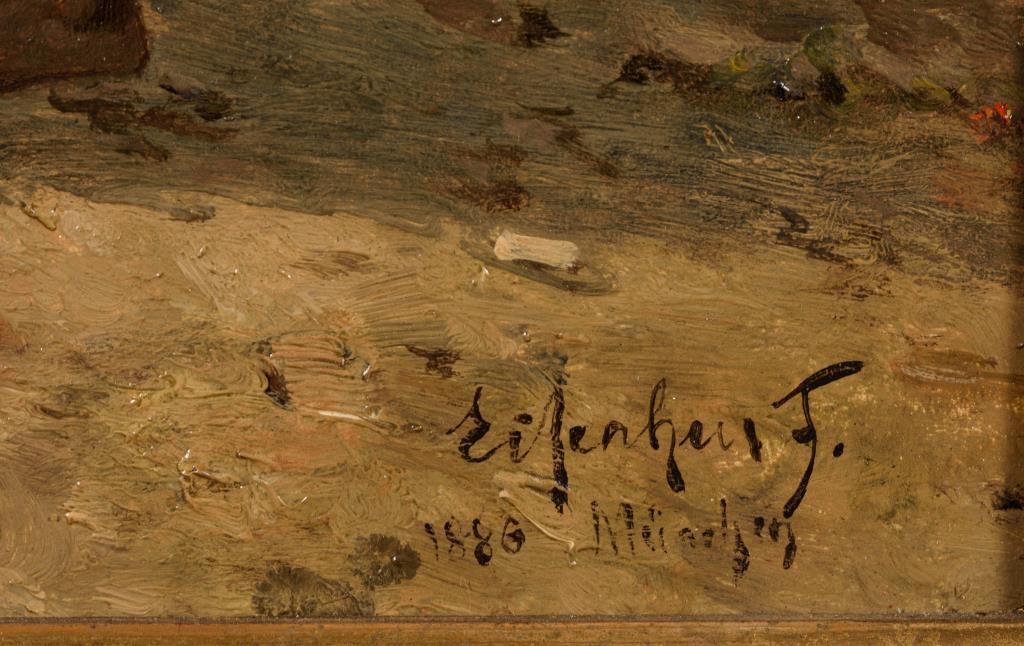 Eisenhut F.
1886 München